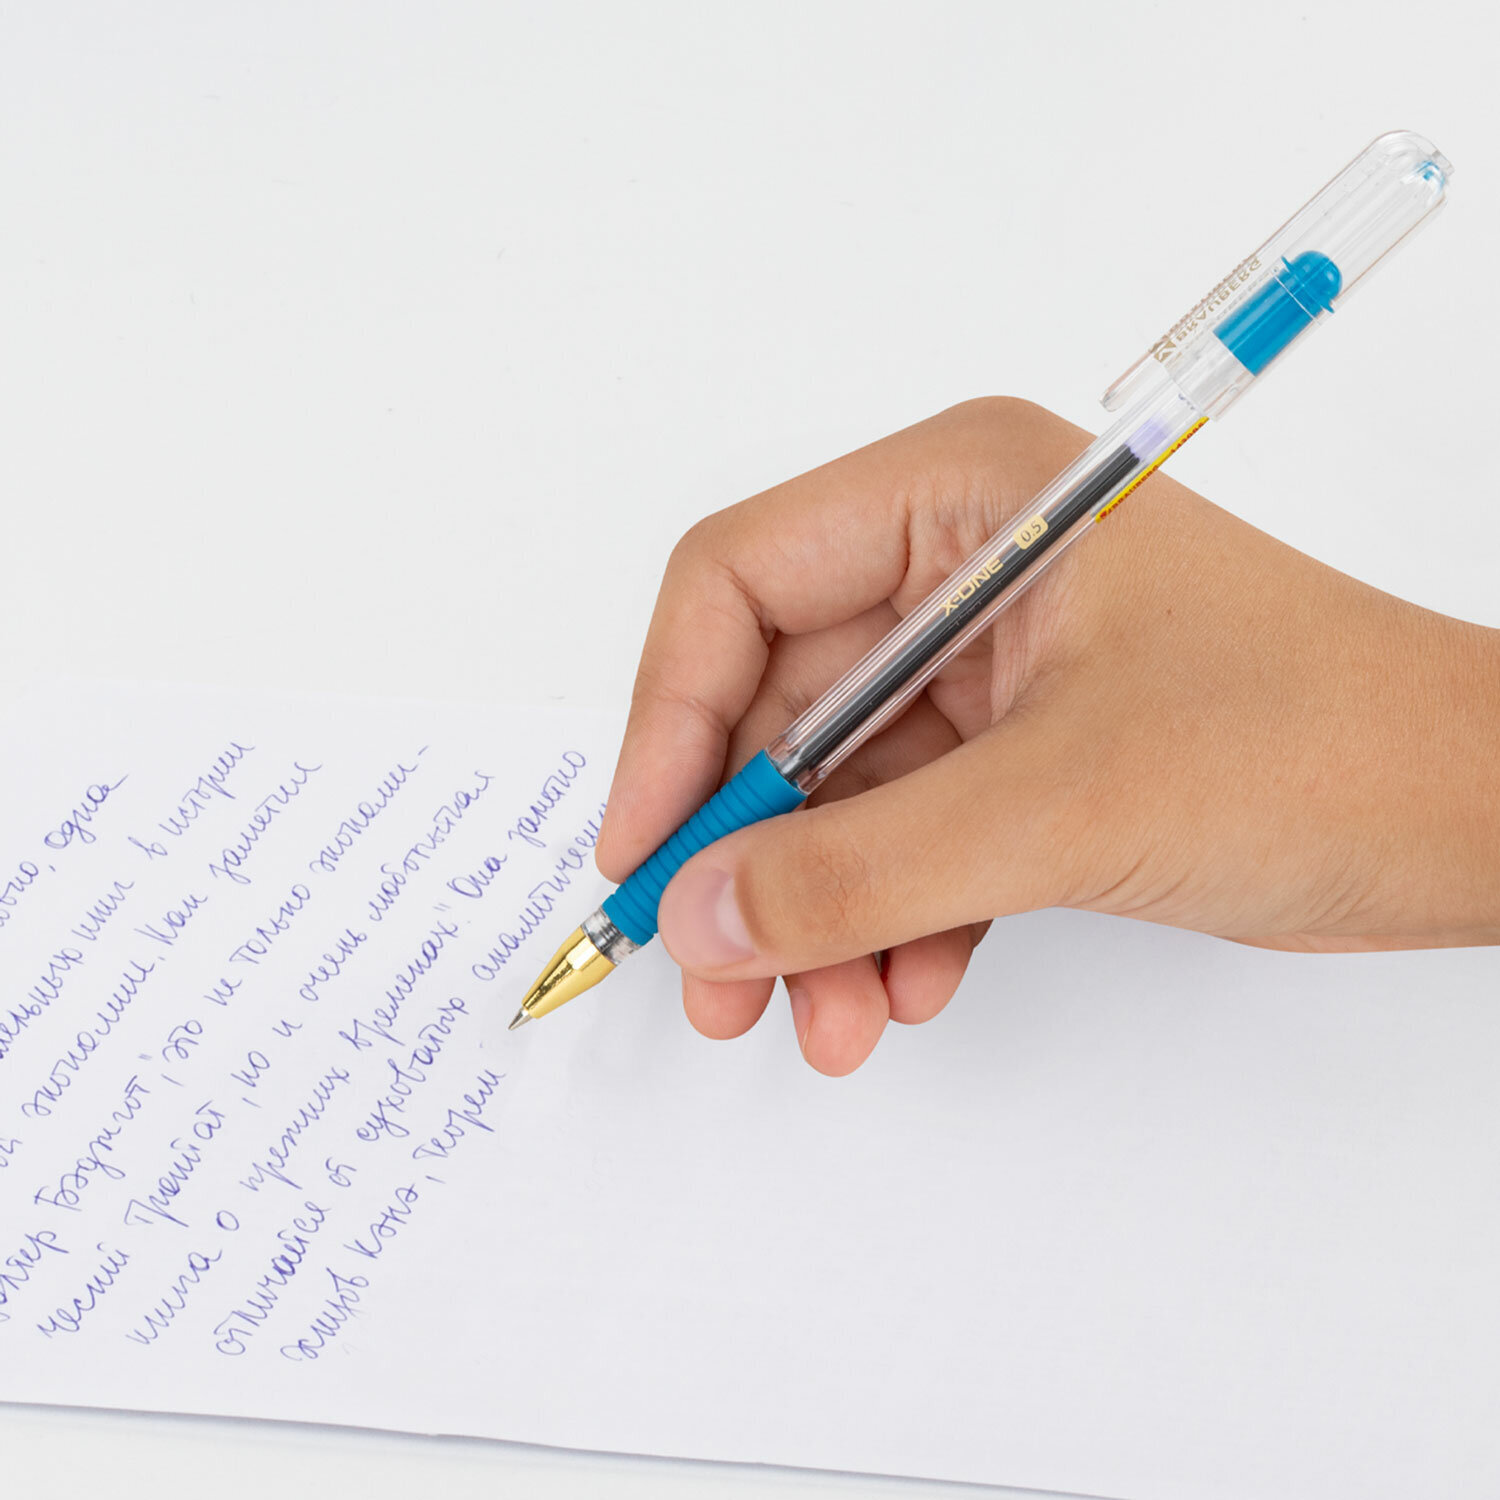 одна
в истории
экономии. Как заметил
Бэджгот, "это не только экономи-
ческий трактат, но и очень любопытная
книга о прежних временах". Она заметно
отличается от суховатых аналитических
эскизов Кэнэ, Теории
BRAUBERG
X-ONE 0.5
BRAUBERG